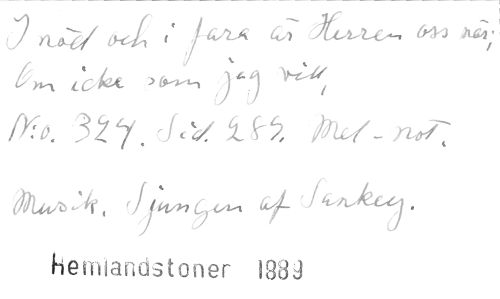 I nöd och i fara är Herren oss när;
Om icke som jag vill,
N:o. 324. Sid. 289. Mel-not.
Musik. Sjungen af Sankey.
Hemlandstoner 1889